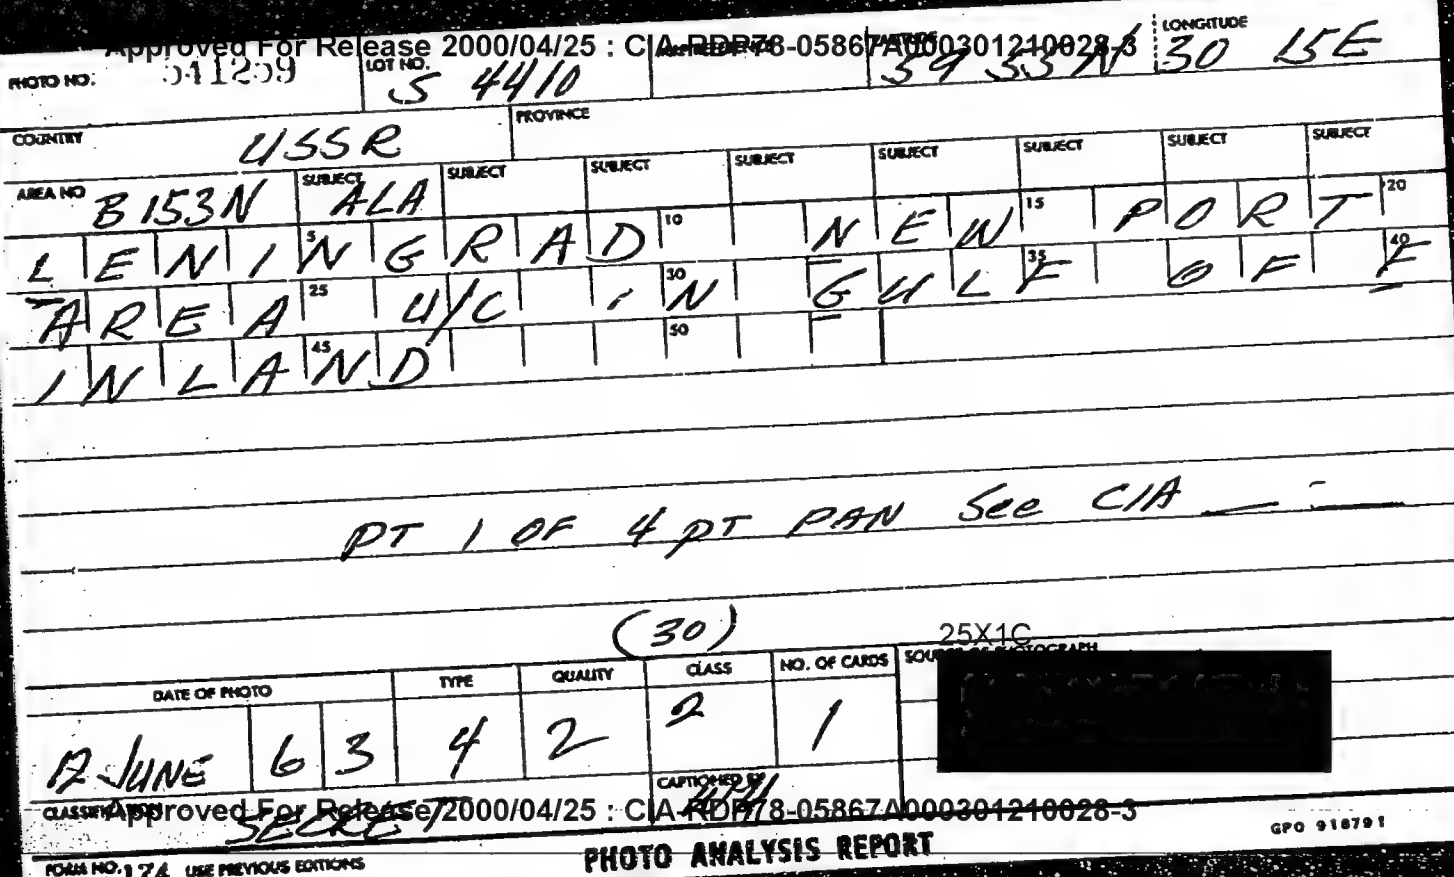 Approved For Release 2000/04/25 : CIA-RDP78-05867A000301210028-3
PHOTO NO. 541259 LOT NO. S 4410 59 53N LONGITUDE 30 15E
COUNTRY USSR PROVINCE
AREA NO B153N SUBJECT ALA SUBJECT SUBJECT SUBJECT SUBJECT SUBJECT SUBJECT SUBJECT
LENINGRAD 5 10 NEW 15 PORT 20
AREA 25 U/C iN 30 GULF 35 OF F 40
INLAND 45 50
PT 1 OF 4 PT PAN See CIA __ - __
(30)
25X1C
DATE OF PHOTO TYPE QUALITY CLASS NO. OF CARDS SOURCE OF PHOTOGRAPH
12 JUNE 63 4 2 2 1
CAPTIONED BY
CLASSIFICATION SECRET
Approved For Release 2000/04/25 : CIA-RDP78-05867A000301210028-3
FORM NO. 174 USE PREVIOUS EDITIONS PHOTO ANALYSIS REPORT GPO 918791